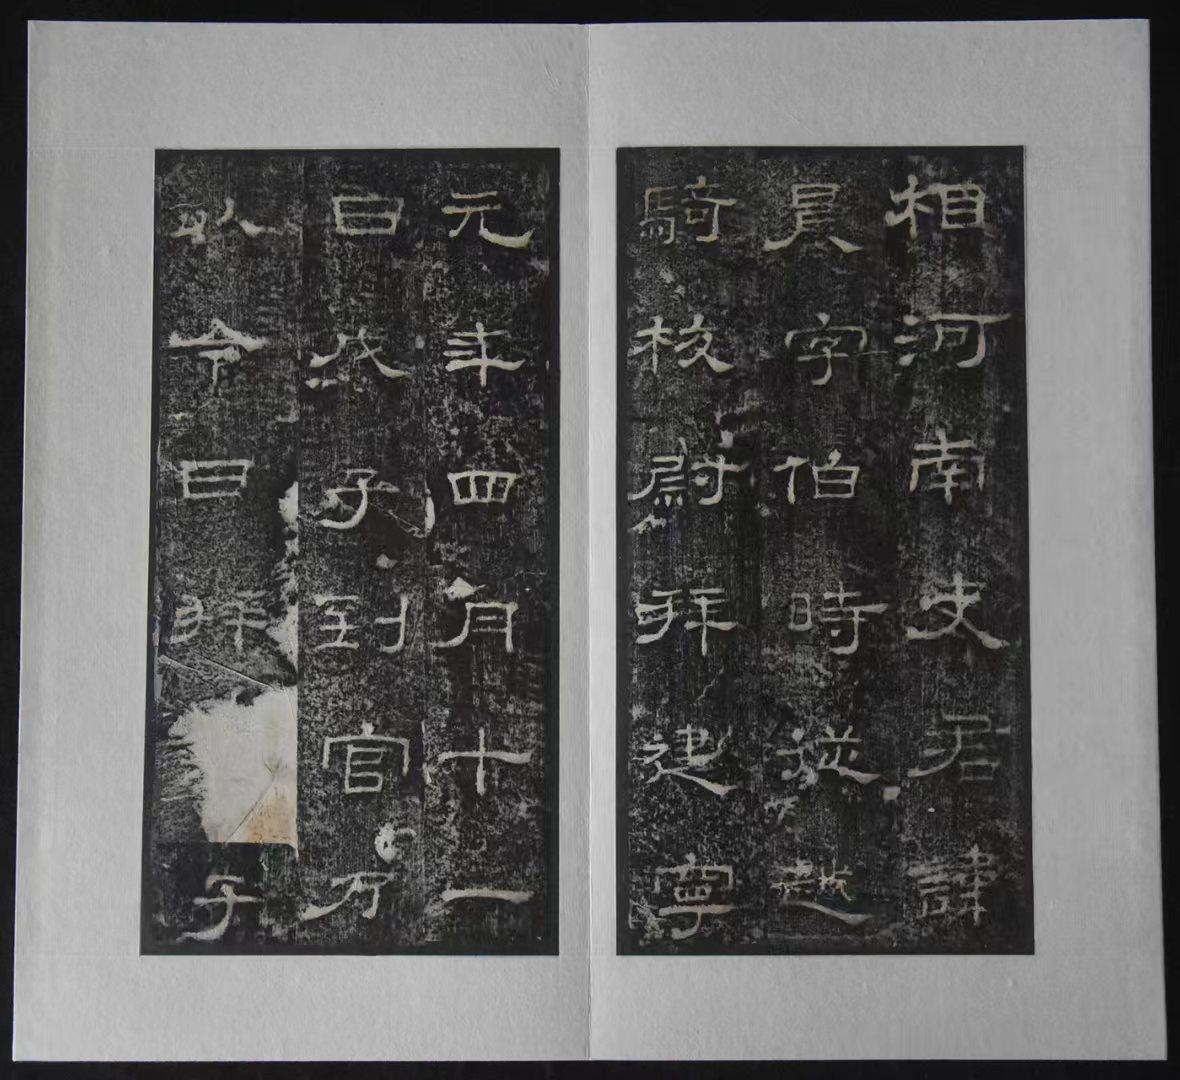 相河南史君諱
晨字伯時從越
騎校尉拜建寧
元年四月十一
日戊子到官乃
以令日拜子